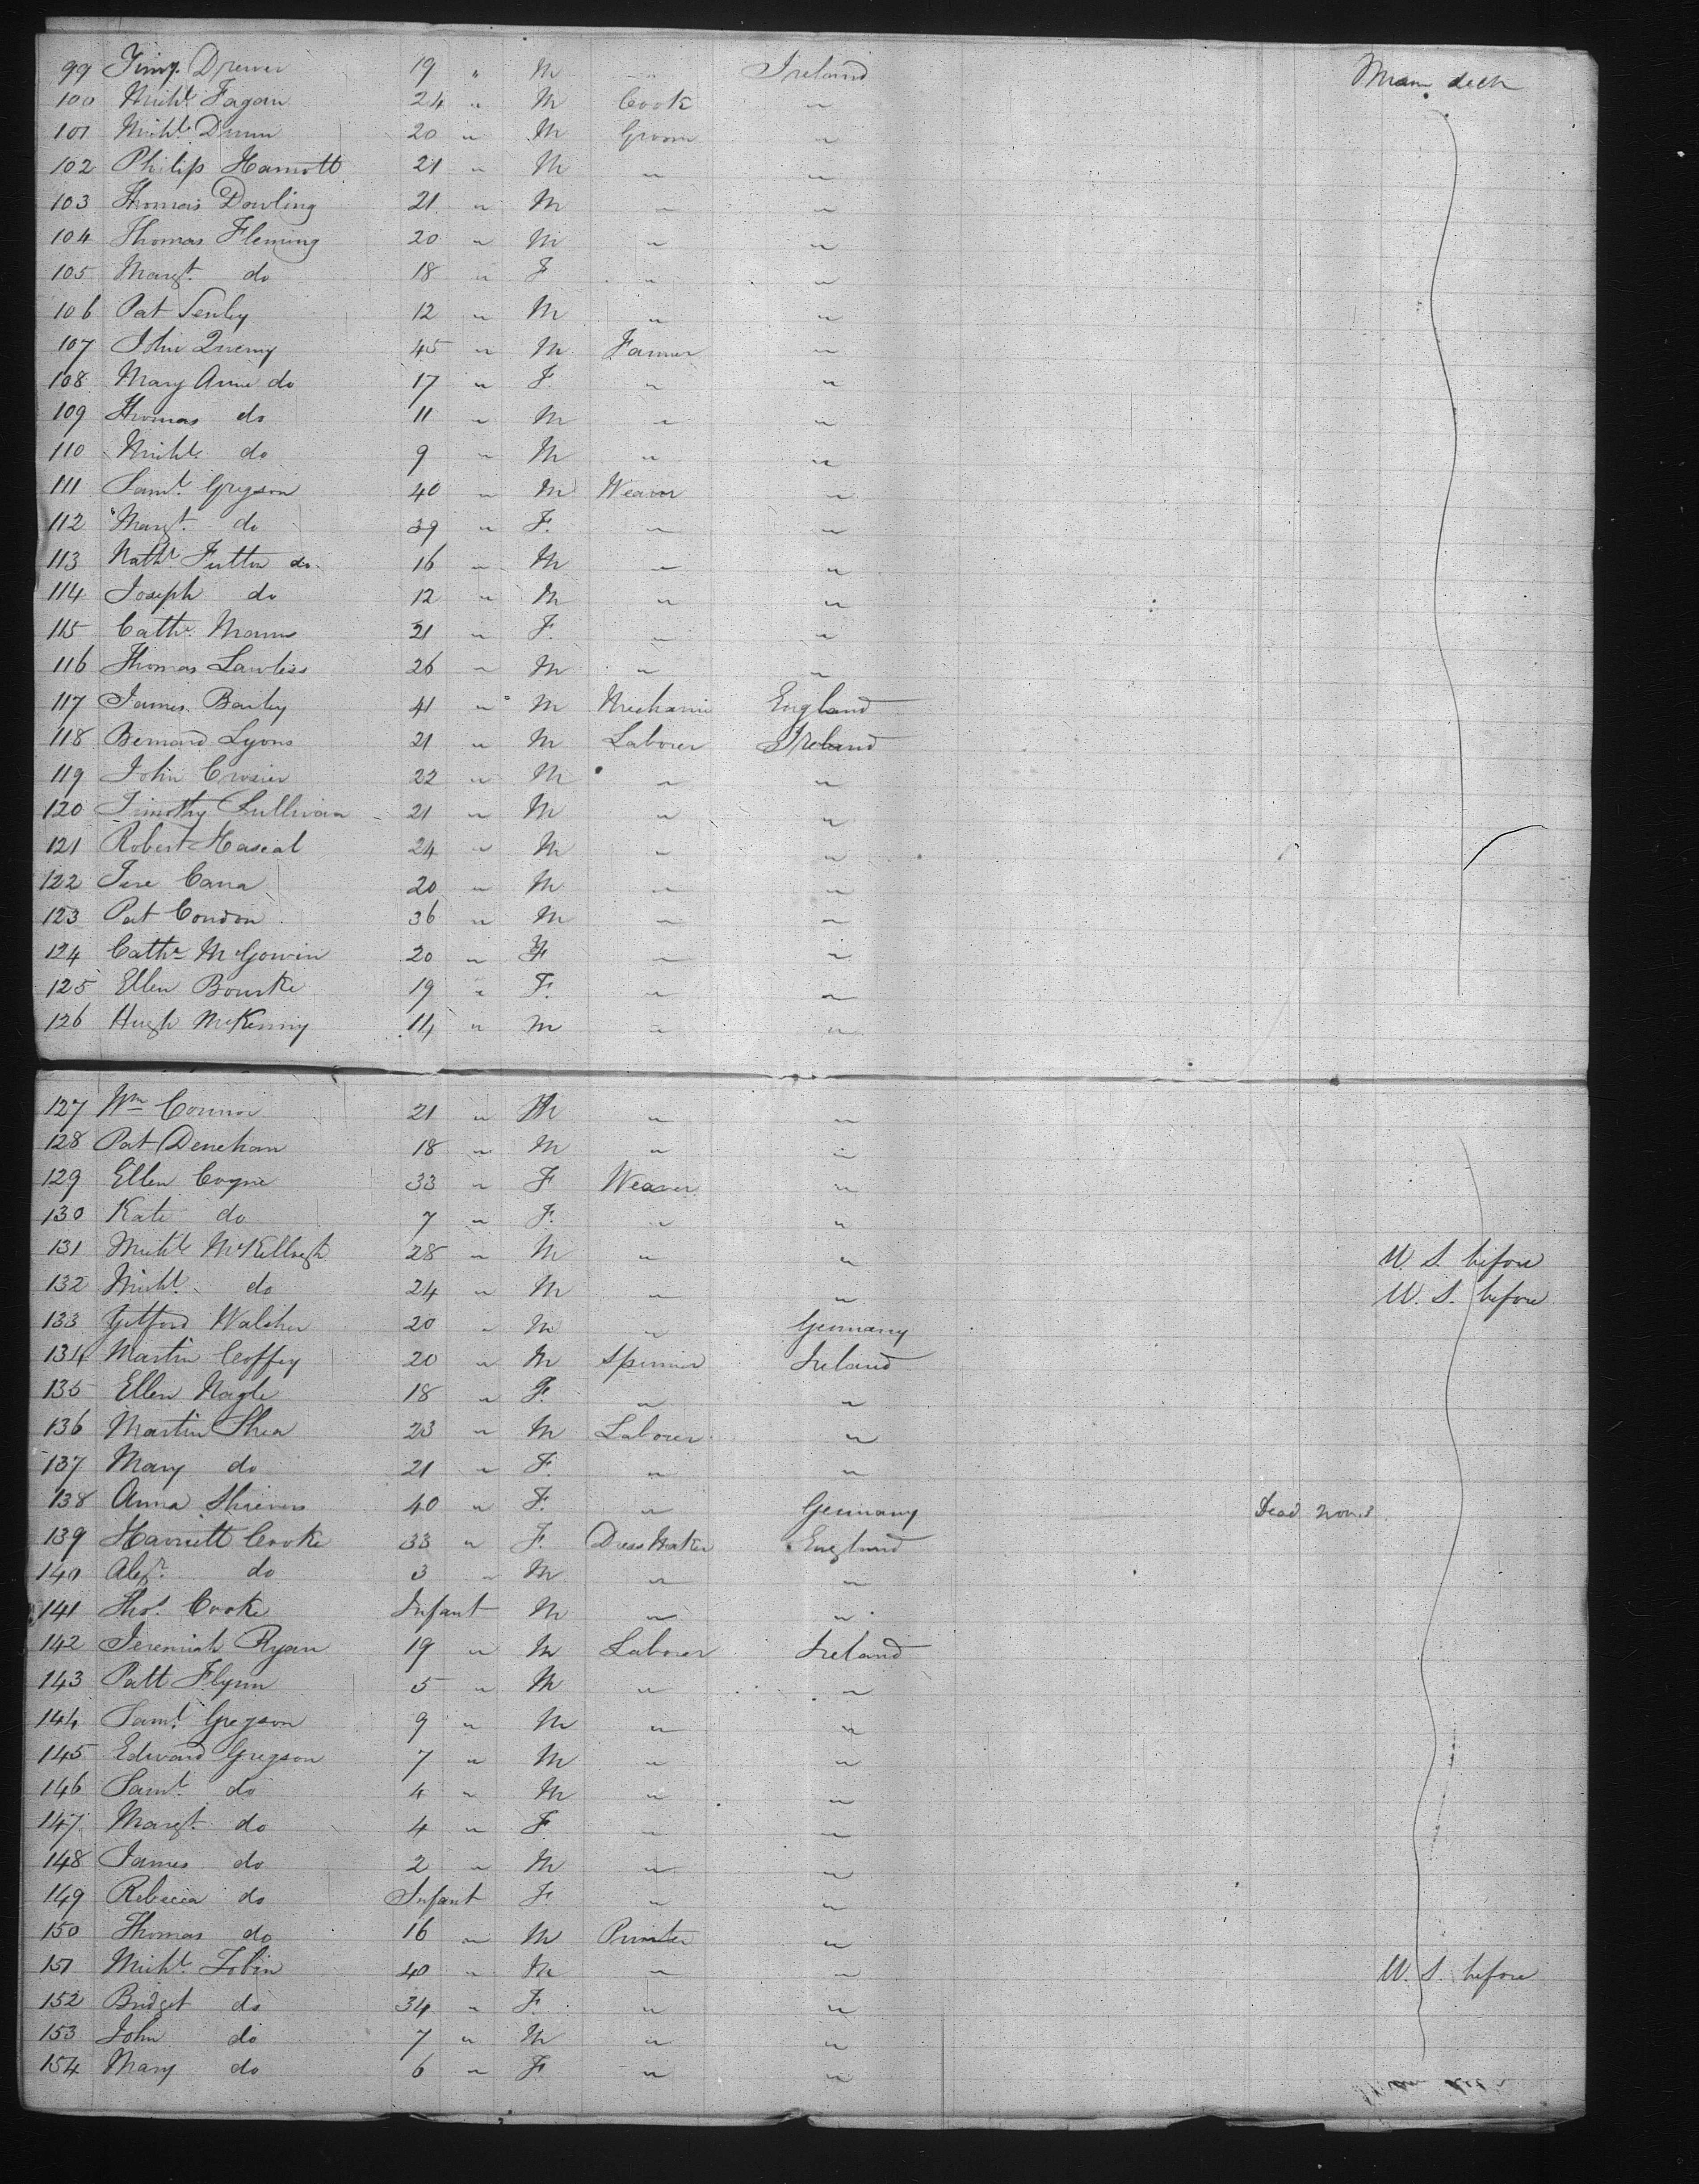 99 Timy. Drewer 19 " M " Ireland Main deck
100 Michl. Fagan 24 " M Cook "
101 Michl. Dunn 20 " M Groom "
102 Philip Hamott 21 " M " "
103 Thomas Dowling 21 " M " "
104 Thomas Fleming 20 " M " "
105 Margt. do 18 " F " "
106 Pat 12 " M " "
107 John 45 " M Farmer "
108 Mary Anne do 17 " F. " "
109 Thomas do 11 " M " "
110 Michl. do 9 " M " "
111 Saml. Gregson 40 " M Weaver "
112 Margt. do 39 " F. " "
113 Nathl. Futton do 16 " M " "
114 Joseph do 12 " M " "
115 Cathe. Mann 21 " F. " "
116 Thomas Lawless 26 " M " "
117 James Barley 41 " M Mechanic England
118 Bernard Lyons 21 " M Laborer Ireland
119 John Crosier 22 " M " "
120 Timothy Sullivan 21 " M " "
121 Robert Haseal 24 " M " "
122 Jere Cana 20 " M " "
123 Pat Condon 36 " M " "
124 Cathe. McGowin 20 " F " "
125 Ellen Bourke 19 " F. " "
126 Hugh McKenny 14 " M " "
127 Wm Connor 21 " M " "
128 Pat Denehan 18 " M " "
129 Ellen Coyne 33 " F Weaver "
130 Kate do 7 " F. " "
131 Michl. 28 " M " " U. S. before
132 Michl. do 24 " M " " U. S. before
133 Walcher 20 " M " Germany
134 Martin Coffey 20 " M Spinner Ireland
135 Ellen Nagle 18 " F. " "
136 Martin Shea 23 " M Laborer "
137 Mary do 21 " F. " "
138 Anna Shrivers 40 " F. " Germany Dead Nov. 3
139 Harriett Cooke 33 " F. Dress Maker England
140 Alexr. do 3 " M " "
141 Thos. Cooke Infant M " "
142 Jeremiah Ryan 19 " M Laborer Ireland
143 Patt Flynn 5 " M " "
144 Saml. Gregson 9 " M " "
145 Edward Gregson 7 " M " "
146 Saml. do 4 " M " "
147 Margt. do 4 " F " "
148 James do 2 " M " "
149 Rebecca do Infant F. " "
150 Thomas do 16 " M Printer "
151 Michl. Tobin 40 " M " " U. S. before
152 Bridget do 34 " F. " "
153 John do 7 " M " "
154 Mary do 6 " F " "